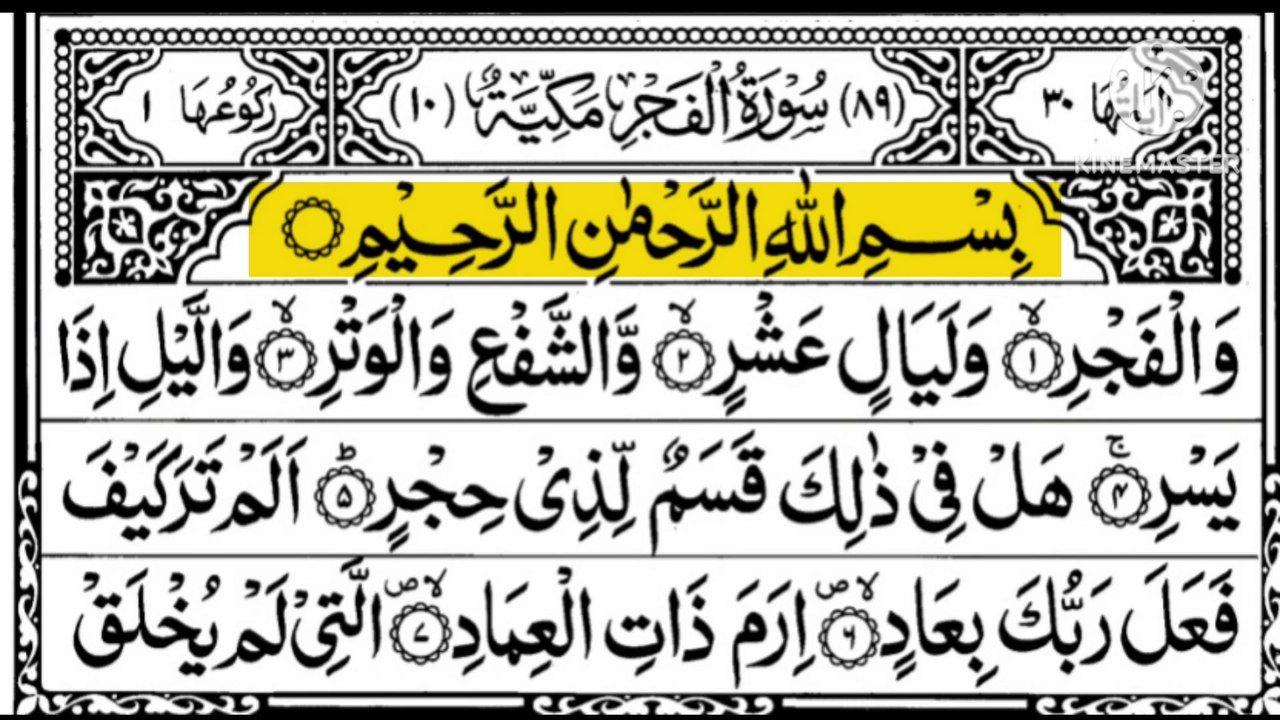 اٰیَاتُهَا ٣٠ (٨٩) سُوْرَةُ الْفَجْرِ مَكِّیَّةٌ (١٠) رُكُوْعُهَا ١
KINEMASTER
بِسْمِ اللّٰهِ الرَّحْمٰنِ الرَّحِیْمِ
وَالْفَجْرِ ۙ﴿١﴾ وَلَیَالٍ عَشْرٍ ۙ﴿٢﴾ وَّالشَّفْعِ وَالْوَتْرِ ۙ﴿٣﴾ وَالَّیْلِ اِذَا
یَسْرِ ۚ﴿٤﴾ هَلْ فِیْ ذٰلِكَ قَسَمٌ لِّذِیْ حِجْرٍ ؕ﴿٥﴾ اَلَمْ تَرَ كَیْفَ
فَعَلَ رَبُّكَ بِعَادٍ ۪ۙ﴿٦﴾ اِرَمَ ذَاتِ الْعِمَادِ ۪ۙ﴿٧﴾ الَّتِیْ لَمْ یُخْلَقْ